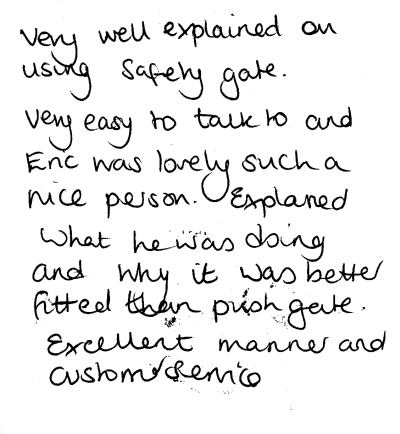 Very well explained on
using Safety gate.
Very easy to talk to and
Eric was lovely such a
nice person. Explaned
What he was doing
and why it was better
fitted then push gate.
Excellent manner and
custom service